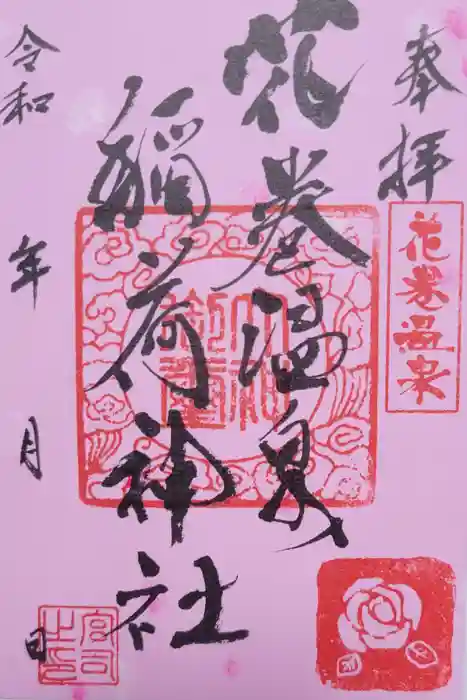 奉拝
花巻温泉
花巻温泉
稲荷神社
令和
年
月
日
宮司之印